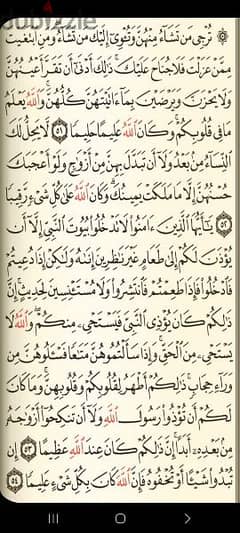 ۞ تُرْجِي مَن تَشَآءُ مِنْهُنَّ وَتُـْٔوِىٓ إِلَيْكَ مَن تَشَآءُ وَمَنِ ٱبْتَغَيْتَ
مِمَّنْ عَزَلْتَ فَلَا جُنَاحَ عَلَيْكَ ذَٰلِكَ أَدْنَىٰٓ أَن تَقَرَّ أَعْيُنُهُنَّ
وَلَا يَحْزَنَّ وَيَرْضَيْنَ بِمَآ ءَاتَيْتَهُنَّ كُلُّهُنَّ وَٱللَّهُ يَعْلَمُ
مَا فِى قُلُوبِكُمْ وَكَانَ ٱللَّهُ عَلِيمًا حَلِيمًا ٥١ لَّا يَحِلُّ لَكَ
ٱلنِّسَآءُ مِنۢ بَعْدُ وَلَآ أَن تَبَدَّلَ بِهِنَّ مِنْ أَزْوَٰجٍ وَلَوْ أَعْجَبَكَ
حُسْنُهُنَّ إِلَّا مَا مَلَكَتْ يَمِينُكَ وَكَانَ ٱللَّهُ عَلَىٰ كُلِّ شَىْءٍ رَّقِيبًا
٥٢ يَـٰٓأَيُّهَا ٱلَّذِينَ ءَامَنُوا۟ لَا تَدْخُلُوا۟ بُيُوتَ ٱلنَّبِىِّ إِلَّآ أَن
يُؤْذَنَ لَكُمْ إِلَىٰ طَعَامٍ غَيْرَ نَـٰظِرِينَ إِنَىٰهُ وَلَـٰكِنْ إِذَا دُعِيتُمْ
فَٱدْخُلُوا۟ فَإِذَا طَعِمْتُمْ فَٱنتَشِرُوا۟ وَلَا مُسْتَـْٔنِسِينَ لِحَدِيثٍ إِنَّ
ذَٰلِكُمْ كَانَ يُؤْذِى ٱلنَّبِىَّ فَيَسْتَحْىِۦ مِنكُمْ وَٱللَّهُ لَا
يَسْتَحْىِۦ مِنَ ٱلْحَقِّ وَإِذَا سَأَلْتُمُوهُنَّ مَتَـٰعًا فَسْـَٔلُوهُنَّ مِن
وَرَآءِ حِجَابٍ ذَٰلِكُمْ أَطْهَرُ لِقُلُوبِكُمْ وَقُلُوبِهِنَّ وَمَا كَانَ
لَكُمْ أَن تُؤْذُوا۟ رَسُولَ ٱللَّهِ وَلَآ أَن تَنكِحُوٓا۟ أَزْوَٰجَهُۥ
مِنۢ بَعْدِهِۦٓ أَبَدًا إِنَّ ذَٰلِكُمْ كَانَ عِندَ ٱللَّهِ عَظِيمًا ٥٣ إِن
تُبْدُوا۟ شَيْـًٔا أَوْ تُخْفُوهُ فَإِنَّ ٱللَّهَ كَانَ بِكُلِّ شَىْءٍ عَلِيمًا ٥٤